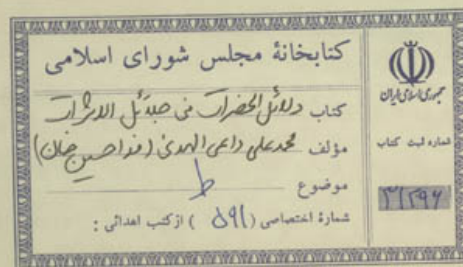 کتابخانهٔ مجلس شورای اسلامی
کتاب دلائل الحضرات فی
مؤلف محمد علی داعی الهدی (فدا حسین خان)
موضوع ط
شمارهٔ اختصاصی (۵۹۱) از کتب اهدائی :
جمهوری اسلامی ایران
شماره ثبت کتاب
۳۱۳۹۶